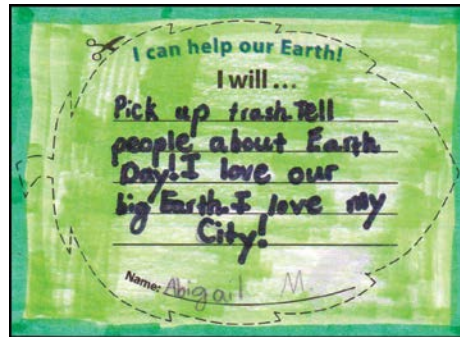 I can help our Earth!
I will ...
Pick up trash. Tell
people about Earth
Day! I love our
big Earth. I love my
City!
Name: Abigail M.